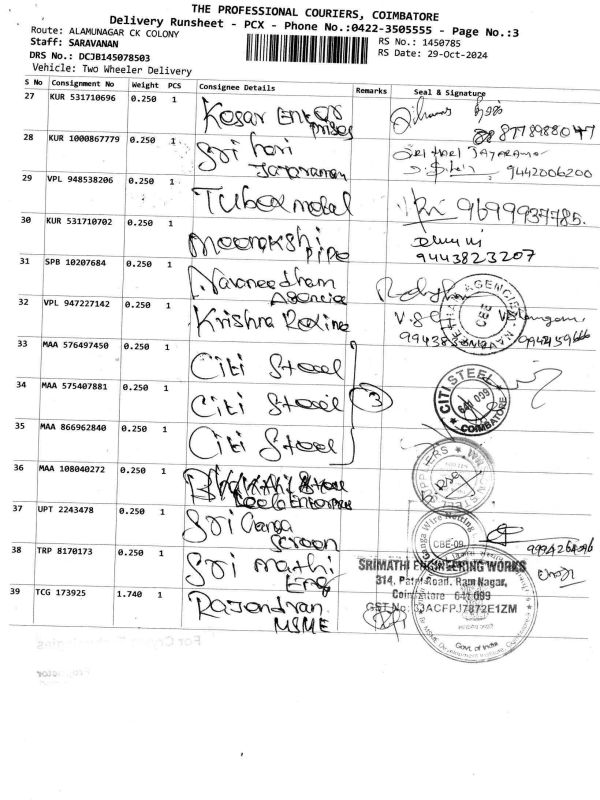 THE PROFESSIONAL COURIERS, COIMBATORE
Delivery Runsheet - PCX - Phone No.:0422-3505555 - Page No.:3
Route: ALAMUNAGAR CK COLONY
Staff: SARAVANAN
RS No.: 1450785
DRS No.: DCJB145078503
RS Date: 29-Oct-2024
Vehicle: Two Wheeler Delivery
S No Consignment No Weight PCS Consignee Details Remarks Seal & Signature
27 KUR 531710696 0.250 1 Kesar Enter
prises
8778988047
28 KUR 1000867779 0.250 1 Sri hari
Jayaraman
SRI HARI JAYARAMAN
9442006200
29 VPL 948538206 0.250 1 Tubexmetal 9699937785.
30 KUR 531710702 0.250 1 Meenakshi
Pipe
9443823207
31 SPB 10207684 0.250 1 Navaneedham
Agencie
32 VPL 947227142 0.250 1 Krishna Rexine
33 MAA 576497450 0.250 1 Citi Steel
34 MAA 575407881 0.250 1 Citi Steel 3
CITI STEEL
641 009
COIMBATORE
35 MAA 866962840 0.250 1 Citi Steel
36 MAA 108040272 0.250 1 Enterprises
37 UPT 2243478 0.250 1 Sri Ganga
Screen
Ganga Wire Netting
CBE-09
9994264096
38 TRP 8170173 0.250 1 Sri mathi
Eng
SRIMATHI ENGINEERING WORKS
314, Patel Road, Ram Nagar,
Coimbatore 641 009
GST No: 33ACFPJ7872E1ZM
39 TCG 173925 1.740 1 Rajendran
MSME
Govt. of India